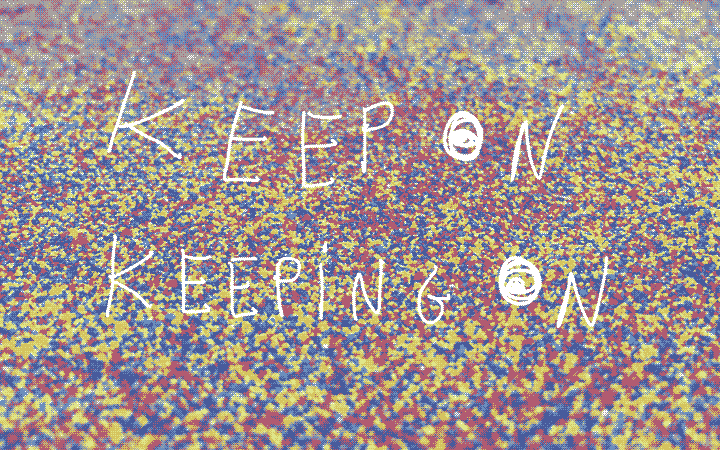 KEEP ON
KEEPING ON